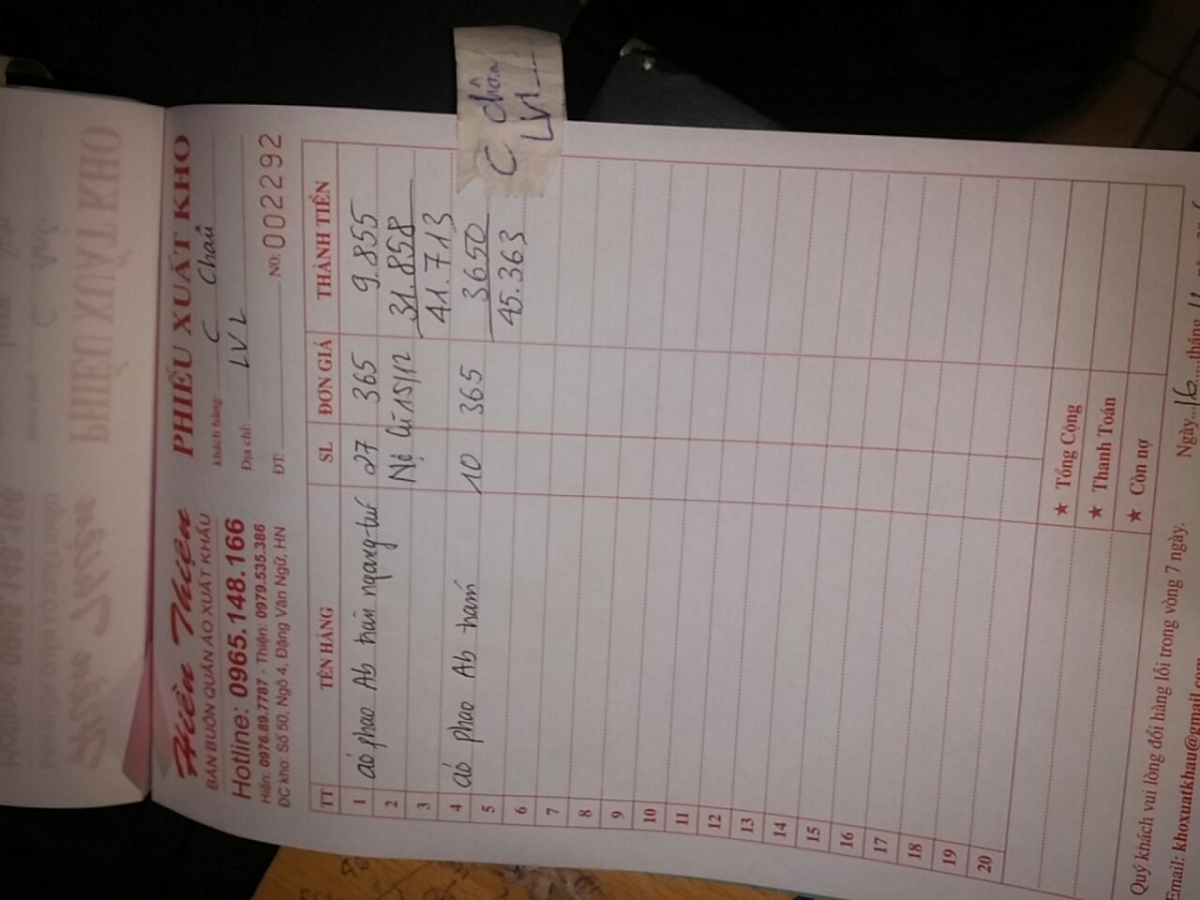 Hiền Thiện
BÁN BUÔN QUẦN ÁO XUẤT KHẨU
Hotline: 0965.148.166
Hiền: 0976.89.7787 - Thiện: 0979.535.386
ĐC kho: Số 50, Ngõ 4, Đặng Văn Ngữ, HN
PHIẾU XUẤT KHO
Khách hàng: C Châu
Địa chỉ: LVL
ĐT: NO: 002292
C Châu
LVL
TT TÊN HÀNG SL ĐƠN GIÁ THÀNH TIỀN
1 áo phao Ab trần ngang 27 365 9.855
2 Nợ cũ 15/12 31.858
3 41.713
4 áo phao Ab trám 10 365 3650
5 45.363
6
7
8
9
10
11
12
13
14
15
16
17
18
19
20
★ Tổng Cộng
★ Thanh Toán
★ Còn nợ
Quý khách vui lòng đổi hàng lỗi trong vòng 7 ngày. Ngày 16 tháng
Email: khoxuatkhau@gmail.com